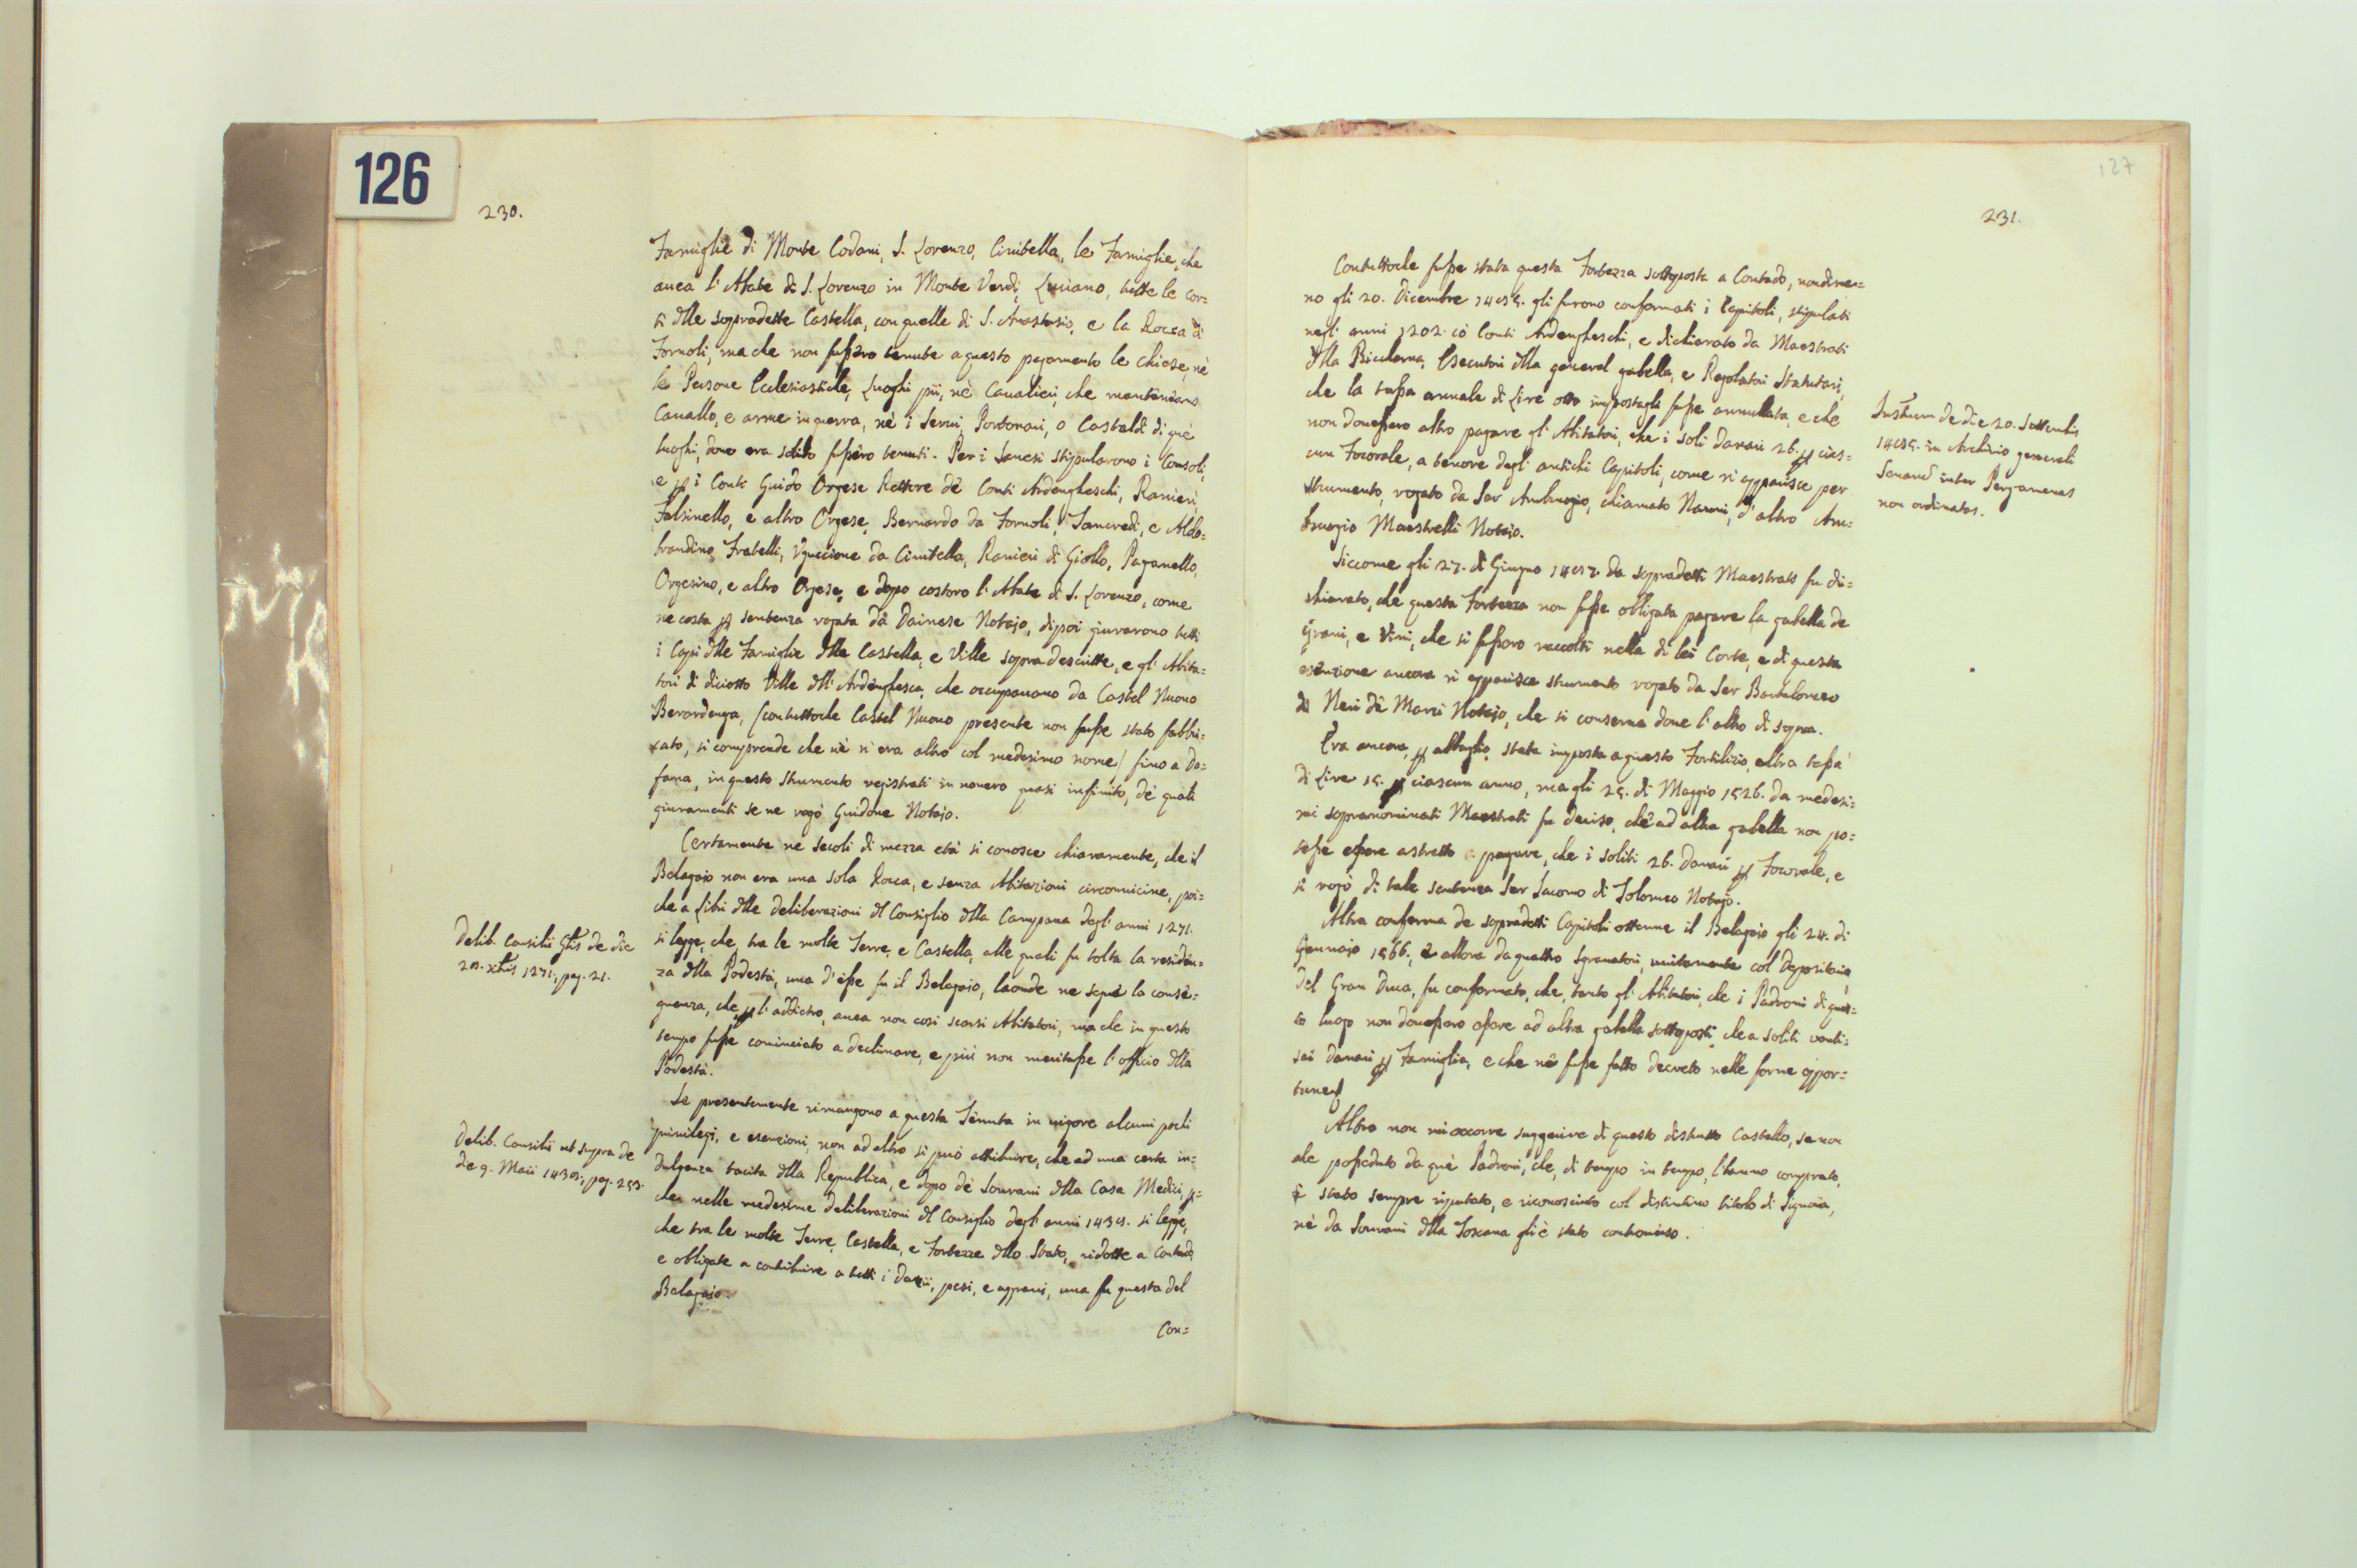 126
230.
Famiglie di Monte Codani, S. Lorenzo, Civitella, le Famiglie, che
auea l'Abate di S. Lorenzo in Monte Verdi, Lusiano, tutte le cor=
ti delle sopradette Castella, con quelle di S. Anastasio, e la Rocca di
Fornoli, ma che non fussero tenute a questo pagamento le chiese, nè
le Persone Ecclesiastiche, Luoghi pii, nè Caualieri, che mantenèano
Cauallo, e arme in guerra, nè i Serui, Portonari, o Castaldi di què
luoghi, doue era solito fussèro tenuti. Per i Sanesi stipularono i Consoli,
e p i Conti Guido Orgese Rettore dè Conti Ardengheschi, Ranieri,
Falsinello, e altro Orgese, Bernardo da Fornoli, Tancredi, e Aldo=
brandino Fratelli, Vguccione da Ciuitella, Ranieri di Giollo, Paganello,
Orgesino, e altro Orgese, e dopo costoro l'Abate di S. Lorenzo, come
ne costa p sentenza rogata da Dainese Notajo, dipoi giurarono tutti
i Capi delle Famiglie delle Castella, e Ville sopra descritte, e gl'Abita=
tori di diciotto Ville dell'Ardenghesca, che occupauano da Castel Nuouo
Berardenga, (contuttoche Castel Nuouo presente non fusse stato fabbri=
cato, si comprende che uè n'era altro col medesimo nome) fino a Do=
fana, in questo strumento registrati in nouero quasi infinito, dè quali
giuramenti se ne rogò Guidone Notajo.
Certamente nè secoli di mezza età si conosce chiaramente, che il
Belagaio non era una sola Rocca, e senza Abitazioni circonuicine, poi=
che a Libri delle deliberazioni del Consiglio della Campana degl'anni 1271.
si legge, che, tra le molte Terre, e Castella, alle quali fu tolta la residen=
za della Podestà, una d'esse fu il Belagaio, laonde ne seguè la conse=
guenza, che, p l'addietro, auea non così scarsi Abitatori, ma che in questo
tempo fusse cominciato a declinare, e più non meritasse l'officio della
Podestà.
Delib. Consilii Gtis de die
20. xbris 1271, pag. 21.
Se presentemente rimangono a questa Tenuta in uigore alcuni pochi
priuilegi, e esenzioni, non ad altro si può attribuire, che ad una certa in=
dulgenza tacita della Republica, e dopo dè Sourani della Casa Medici, p=
che nelle medesime deliberazioni del Consiglio degl'anni 1430. si legge,
che tra le molte Terre, Castella, e Fortezze dello Stato, ridotte a Contado,
e obligate a contribuire a tutti i Dazii, pesi, e aggraui, una fu questa del
Belagaio.
Delib. Consilii ut supra de
die 9. Maii 1430, pag. 253.
Con=
127
231.
Contuttoche fusse stata questa Fortezza sottoposta a Contado, nondime=
no gli 20. Dicembre 1405. gli furono confermati i Capitoli, stipulati
negl'anni 1202. cò Conti Ardengheschi, e dichiarato da Maestrati
della Biccherna, Esecutori della general gabella, e Regolatori Statutari,
che la tassa annuale di Lire otto impostagli fusse annullata, e che
non douessero altro pagare gl'Abitatori, che i soli danari 26. p cias=
cun Focorale, a tenore degl'antichi Capitoli, come n'apparisce per
strumento, rogato da Ser Ambruogio, chiamato Nanni, d'altro Am=
bruogio Maestrelli Notajo.
Instrum de die 20. Settembris
1405. in Archiuio generali
Senarum inter Pergamenas
non ordinatas.
Siccome gli 27. di Giugno 1407. da sopradetti Maestrati fu di=
chiarato, che questa Fortezza non fusse obligata pagare la gabella de
Grani, e Vini, che si fussero raccolti nella di lei Corte, e di questa
esenzione ancora n'apparisce strumento rogato da Ser Bartolomeo
di Neri dè Marzi Notajo, che si conserua doue l'altro di sopra.
Era ancora, p abbaglio, stata imposta a questo Fortilizio, altra tassa
di Lire 15. p ciascun anno, ma gli 25. di Maggio 1526. da medesi=
mi sopranominati Maestrati fu deciso, che ad altra gabella non po=
tesse essere astretto a pagare, che i soliti 26. danari p Focorale, e
si rogò di tale sentenza Ser Iacomo di Tolomeo Notajo.
Altra conferma de sopradetti Capitoli ottenne il Belagaio gli 24. di
Gennajo 1566., e allora da quattro Sgrauatori, unitamente col Depositario
del Gran Duca, fu confermato, che, tanto gl'Abitatori, che i Padroni di ques=
to luogo non douessero essere ad altra gabella sottoposti, che a soliti venti=
sei danari p Famiglia, e che nè fusse fatto decreto nelle forme oppor=
tune.
Altro non mi occorre suggerire di questo distrutto Castello, se non
che posseduto da què Padroni, che, di tempo in tempo, l'hanno comprato,
è stato sempre riputato, e riconosciuto col distintiuo titolo di Signoria,
nè da Sourani della Toscana gli è stato controuerso.